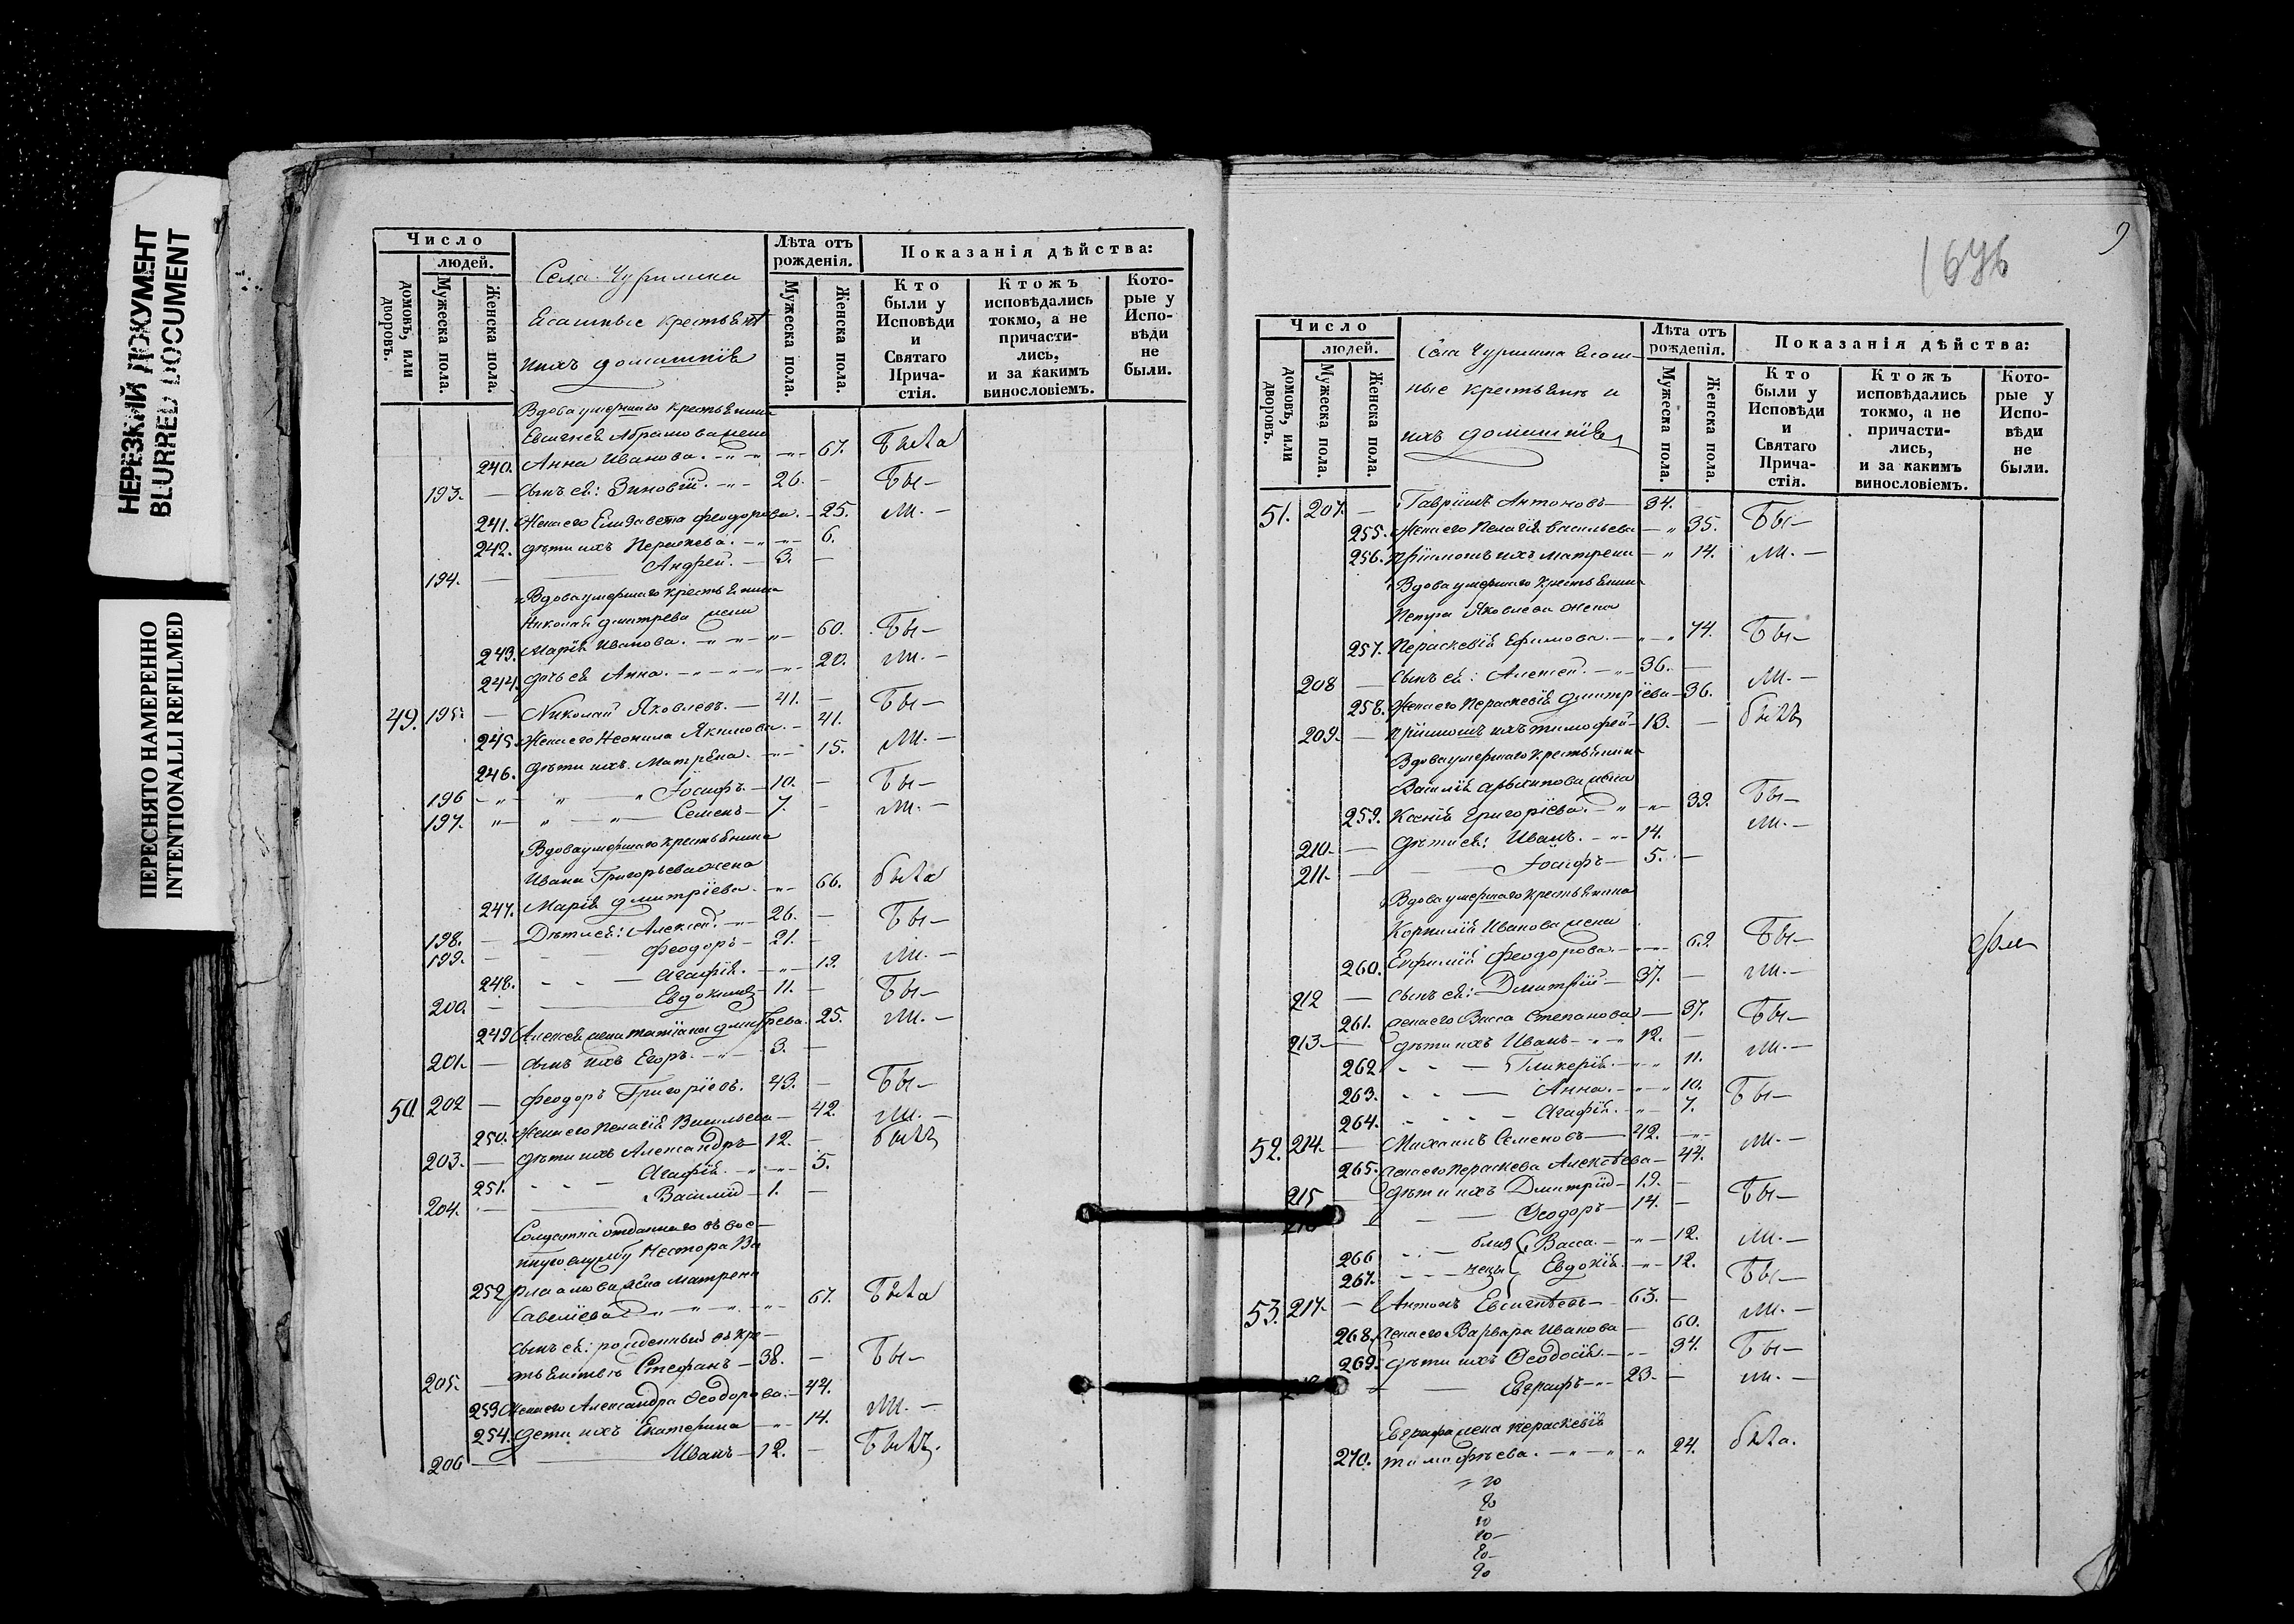 НЕРЕЗКИЙ ДОКУМЕНТ
BLURRED DOCUMENT
ПЕРЕСНЯТО НАМЕРЕННО
INTENTIONALLI REFILMED
Число
людей.
домовъ, или дворовъ.
Мужеска пола.
Женска пола.
Села Чурилина
Ясашные крестьяне
ихъ домашніе
Лѣта отъ рожденія.
Мужеска пола.
Женска пола.
Показанія дѣйства:
Кто были у Исповѣди и Святаго Прича-стія.
Ктожъ исповѣдались токмо, а не причасти-лись, и за какимъ винословіемъ.
Кото-рые у Испо-вѣди не были.
Вдова умершаго крестьянина
Абрамова жена
240. Анна Иванова. 67. была
193. — сынъ ея: Зиновій. 26. — бы—
241. Жена его Елизавета Феодорова. — 25. ли. —
242. дѣти ихъ Параскева. 6.
194. — Андрей. — 3. —
Вдова умершаго крестьянина
Николая Дмитрева жена
243. Марія Иванова. 60. бы—
244. дочь ея Анна. 20. ли. —
49. 195. — Николай Яковлевъ. — 41. — бы—
245. Жена его Неонила Якимова. — 41.
246. дѣти ихъ Матрена. 15. ли. —
196 Іосифъ. — 10. — бы—
197. Семенъ — 7. — ли. —
Вдова умершаго крестьянина
Ивана Григорьева жена
247. Марія Дмитріева. 66. была
198. — Дѣти ея: Алексей. 26. — бы—
199. Феодоръ — 21. —
248. — Агафія. 19. ли. —
200. Евдокимъ — 11. — бы—
249 Алексея жена Татіана Дмитрева. 25. ли. —
201. — сынъ ихъ Егоръ. 3. —
50. 202 — Феодоръ Григоріевъ. 43. — бы—
250. Жена его Пелагія Васильева — 42. ли. —
203. — дѣти ихъ Александръ 12. — былъ
251. Агафія. 5.
204. Василій — 1. —
Солдатка отданнаго въ вое—
нную службу Нестора Ва
252 жена Матрена
Савеліева 67. была
сынъ ея: рожденный въ кре—
205. — стьянствѣ Стефанъ — 38. — бы—
253 Жена его Александра Ѳеодорова. — 44. ли. —
254. дети ихъ Екатерина 14.
206 — Иванъ — 12. — былъ.
9
Число
людей.
домовъ, или дворовъ.
Мужеска пола.
Женска пола.
Села Чурилина Ясаш—
ные крестьяне и
ихъ домашніе
Лѣта отъ рожденія.
Мужеска пола.
Женска пола.
Показанія дѣйства:
Кто были у Исповѣди и Святаго Прича-стія.
Ктожъ исповѣдались токмо, а не причасти-лись, и за какимъ винословіемъ.
Кото-рые у Испо-вѣди не были.
51. 207. — Гавріилъ Антоновъ — 34. бы—
255. Жена его Пелагія Васильева 35.
256. пріемышъ ихъ Матрена 14. ли. —
Вдова умершаго крестьянина
Петра Яковлева жена
257. Параскевія Ефимова. 74. бы—
208 — сынъ ея: Алексей. 36. —
258. Жена его Параскевія Дмитріева — 36. ли. —
209. — пріемышъ ихъ Тимофей — 13. — былъ
Вдова умершаго крестьянина
Василія Архипова жена
259. Ксенія Григоріева. 39. бы—
210 — дѣти ея: Иванъ. 14. ли. —
211. — Іосифъ — 5. —
Вдова умершаго крестьянина
Корнилія Иванова жена
260. Евфимія Феодорова. 69 бы—
212 — сынъ ея: Дмитрій — 37. — ли. —
261. жена его Васса Степанова — 37. бы—
213 — дѣти ихъ Иванъ 12. —
262 Гликерія. 11. ли. —
263. Анна. 10. бы—
264. Агафія. 7.
52. 214. — Михаилъ Семеновъ — 42. ли. —
265. жена его Параскева Алексѣева — 44.
215 — дѣти ихъ Дмитрій — 19. —
216 — Ѳеодоръ — 14. — бы—
266 близ Васса. 12. ли. —
267. нецы Евдокія. 12. бы—
53. 217. — Антонъ Евсигнѣевъ 63. —
268. жена его Варвара Иванова — 60. ли. —
269. дѣти ихъ Ѳеодосія. 34. бы—
Евграфъ 23. — ли. —
Евграфа жена Параскевія
270. Тимофѣева. 24. была.